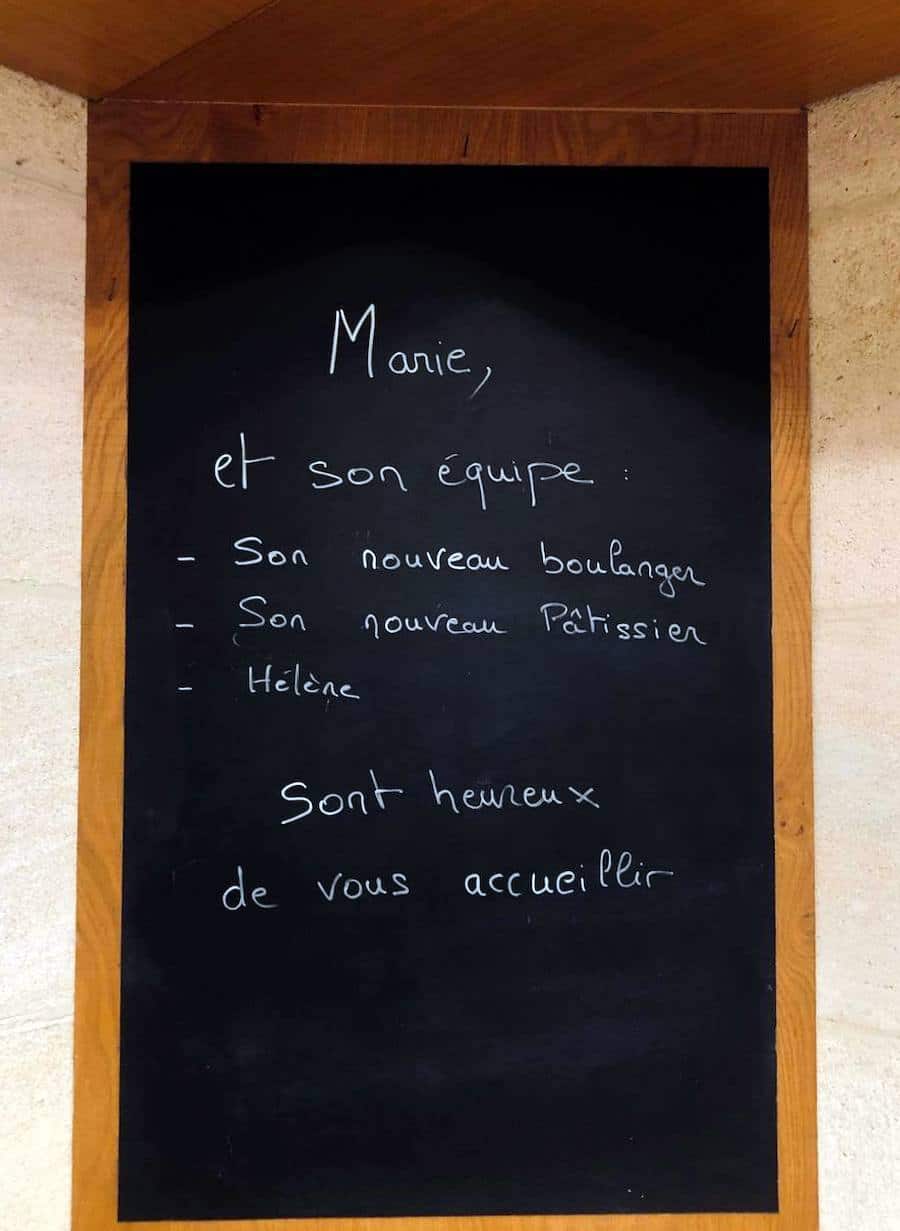 Marie,
et son équipe :
- Son nouveau boulanger
- Son nouveau Pâtissier
- Hélène
Sont heureux
de vous accueillir